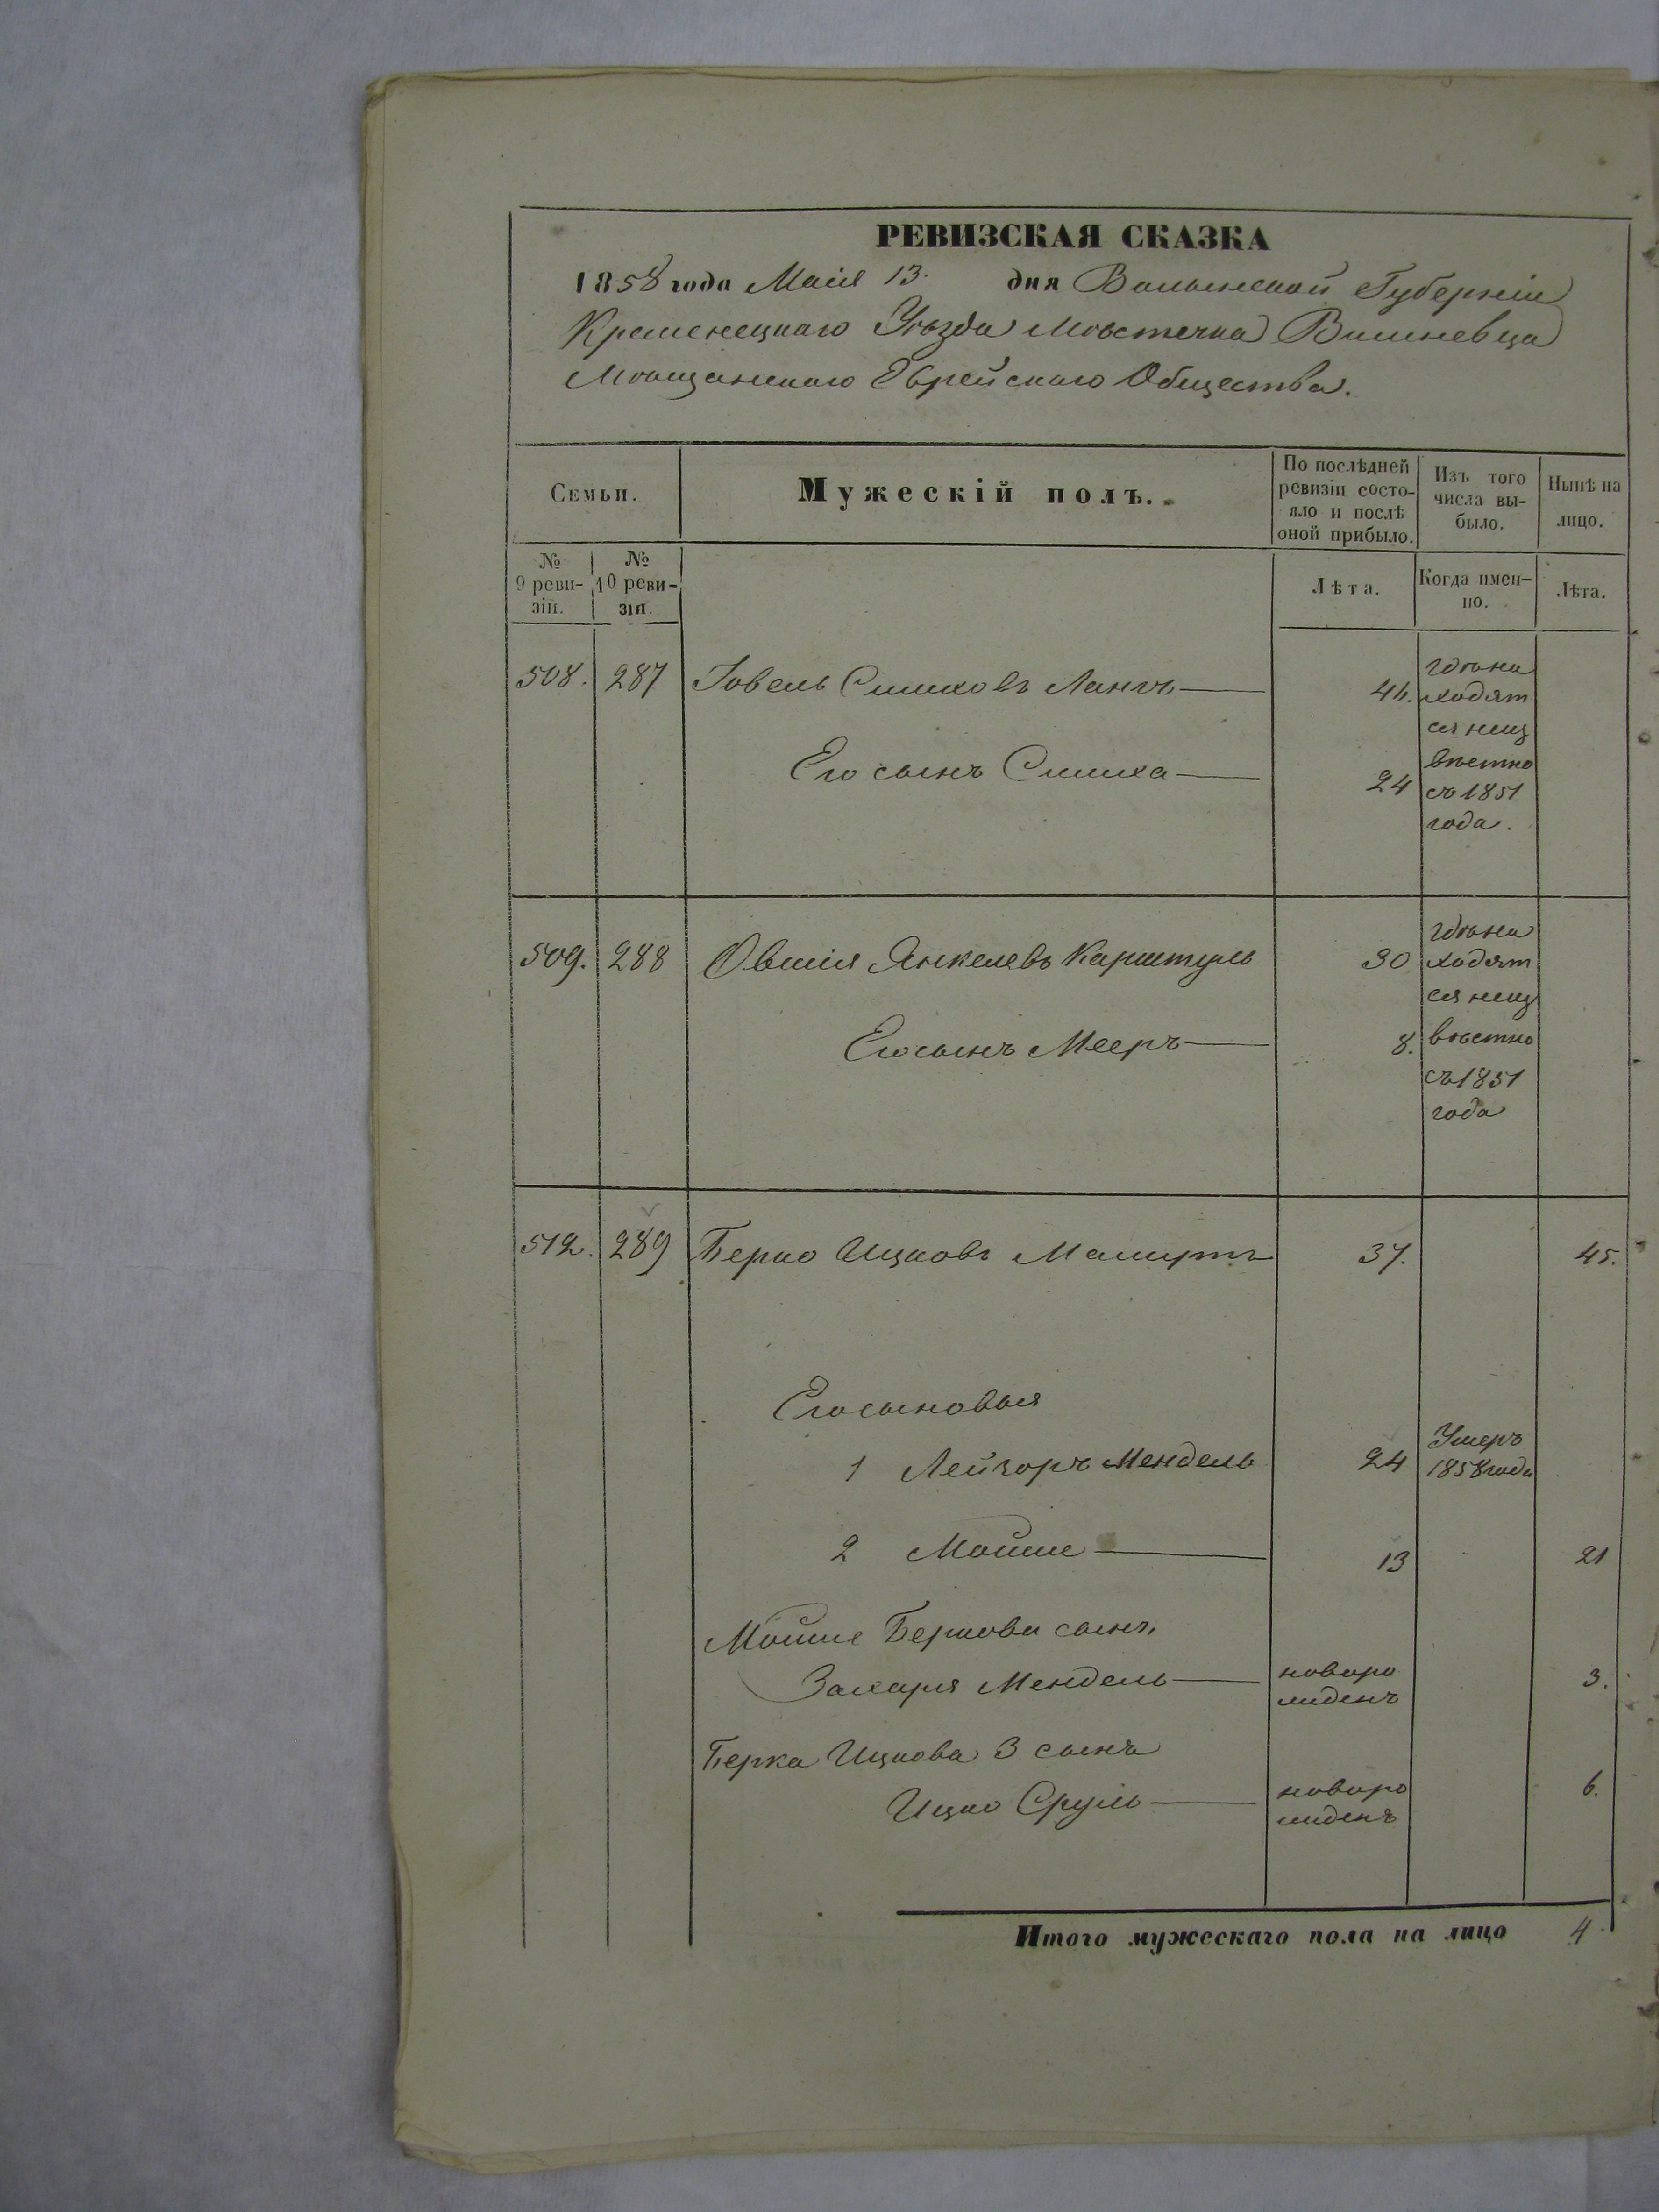 РЕВИЗСКАЯ СКАЗКА
1858 года Маія 13. дня Волынской Губерніи
Кременецкаго Уѣзда Мѣстечка Вишневца
Мѣщанскаго Еврейскаго Общества.
Семьи.
Мужескій полъ.
По послѣдней
ревизіи состо-
яло и послѣ
оной прибыло.
Изъ того
числа вы-
было.
Нынѣ на
лицо.
№
9 реви-
зіи.
№
10 реви-
зіи.
Лѣта.
Когда имен-
но.
Лѣта.
508. 287 Іовель Симховъ
Его сынъ Симха 24
гдѣ на
ходят
ся неиз
вѣстно
съ 1851
года.
509. 288 Овшія Янкелевъ Карштуль 30
Его сынъ Мееръ 8.
гдѣ на
ходят
ся неиз
вѣстно
съ 1851
года
512. 289 Берко Ицковъ 37. 45.
Его сыновья
1 Лейзоръ Мендель 24 Умеръ
1858 года
2 Мойше 13 21
Мойше Беркова сынъ
Захарія Мендель новоро
жденъ 3.
Берка Ицкова 3 сынъ
Ицко Сруль новоро
жденъ 6.
Итого мужескаго пола на лицо 4.